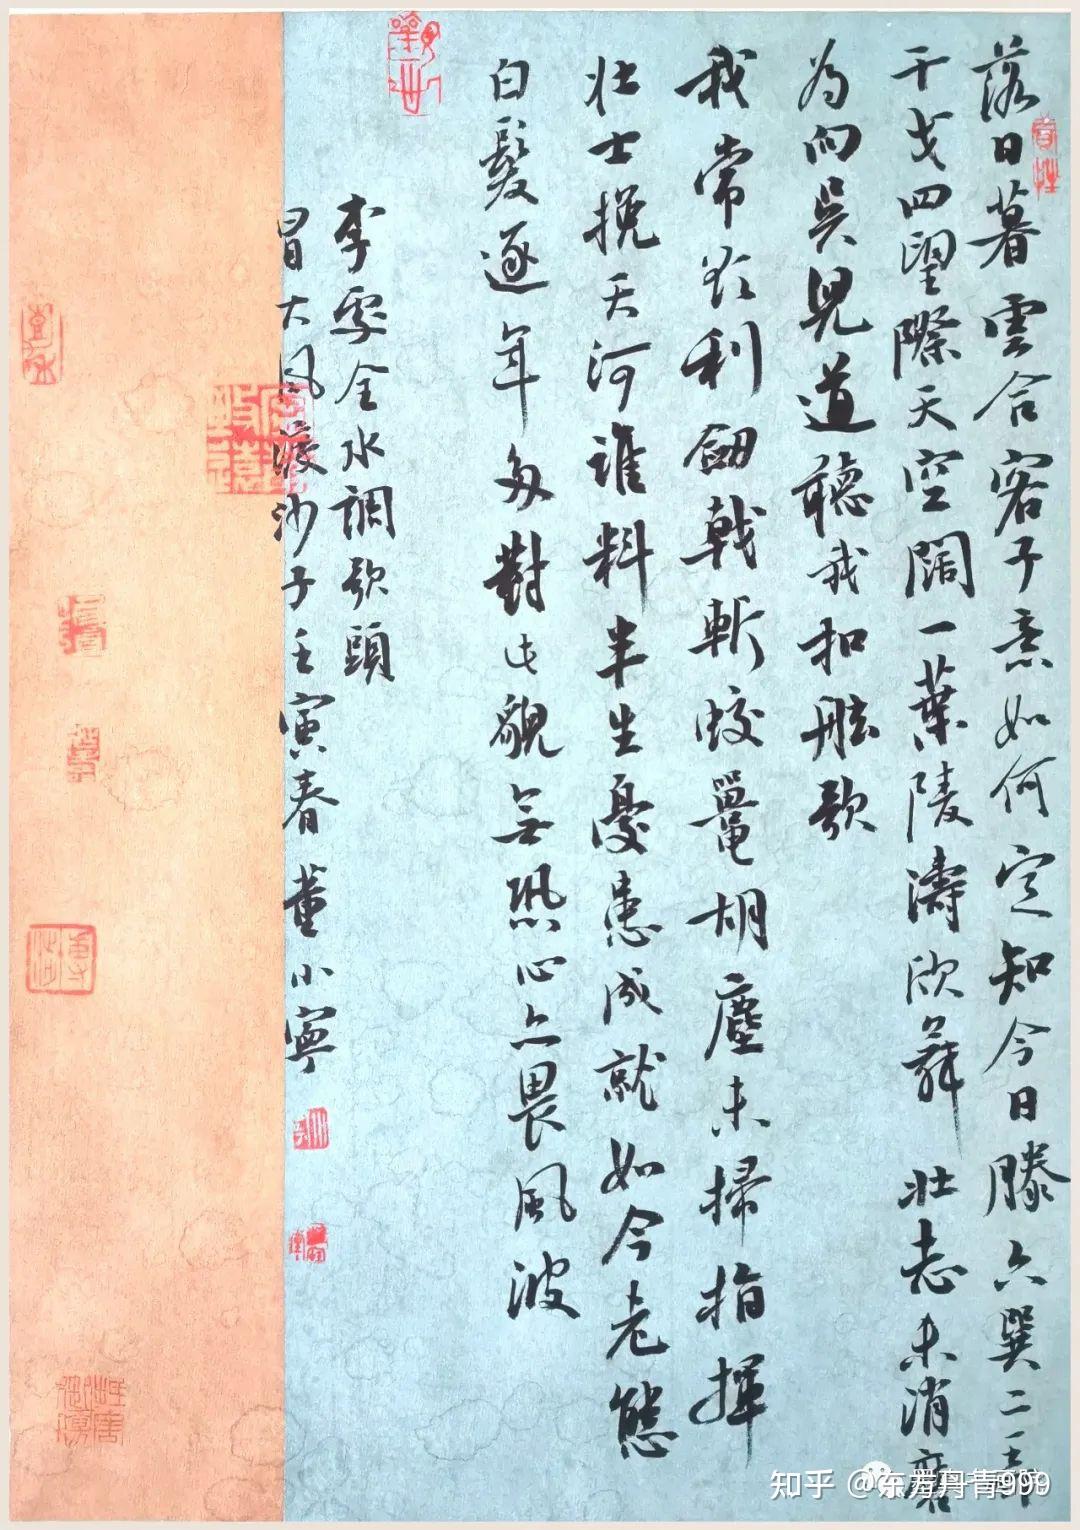 落日暮雲合客子意如何定知今日滕六巽二弄
干戈四望際天空闊一葉陵濤欣舞壯志未消磨
為向吳兒道聽我扣舷歌
我常欲利劒戟斬蛟鼉胡塵未掃指揮
壯士挽天河誰料半生憂患成就如今老態
白髮逐年多對此貌無恐心亦畏風波
李處全水調歌頭
冒大風渡沙子壬寅春董小寧
知乎 @东方丹青999